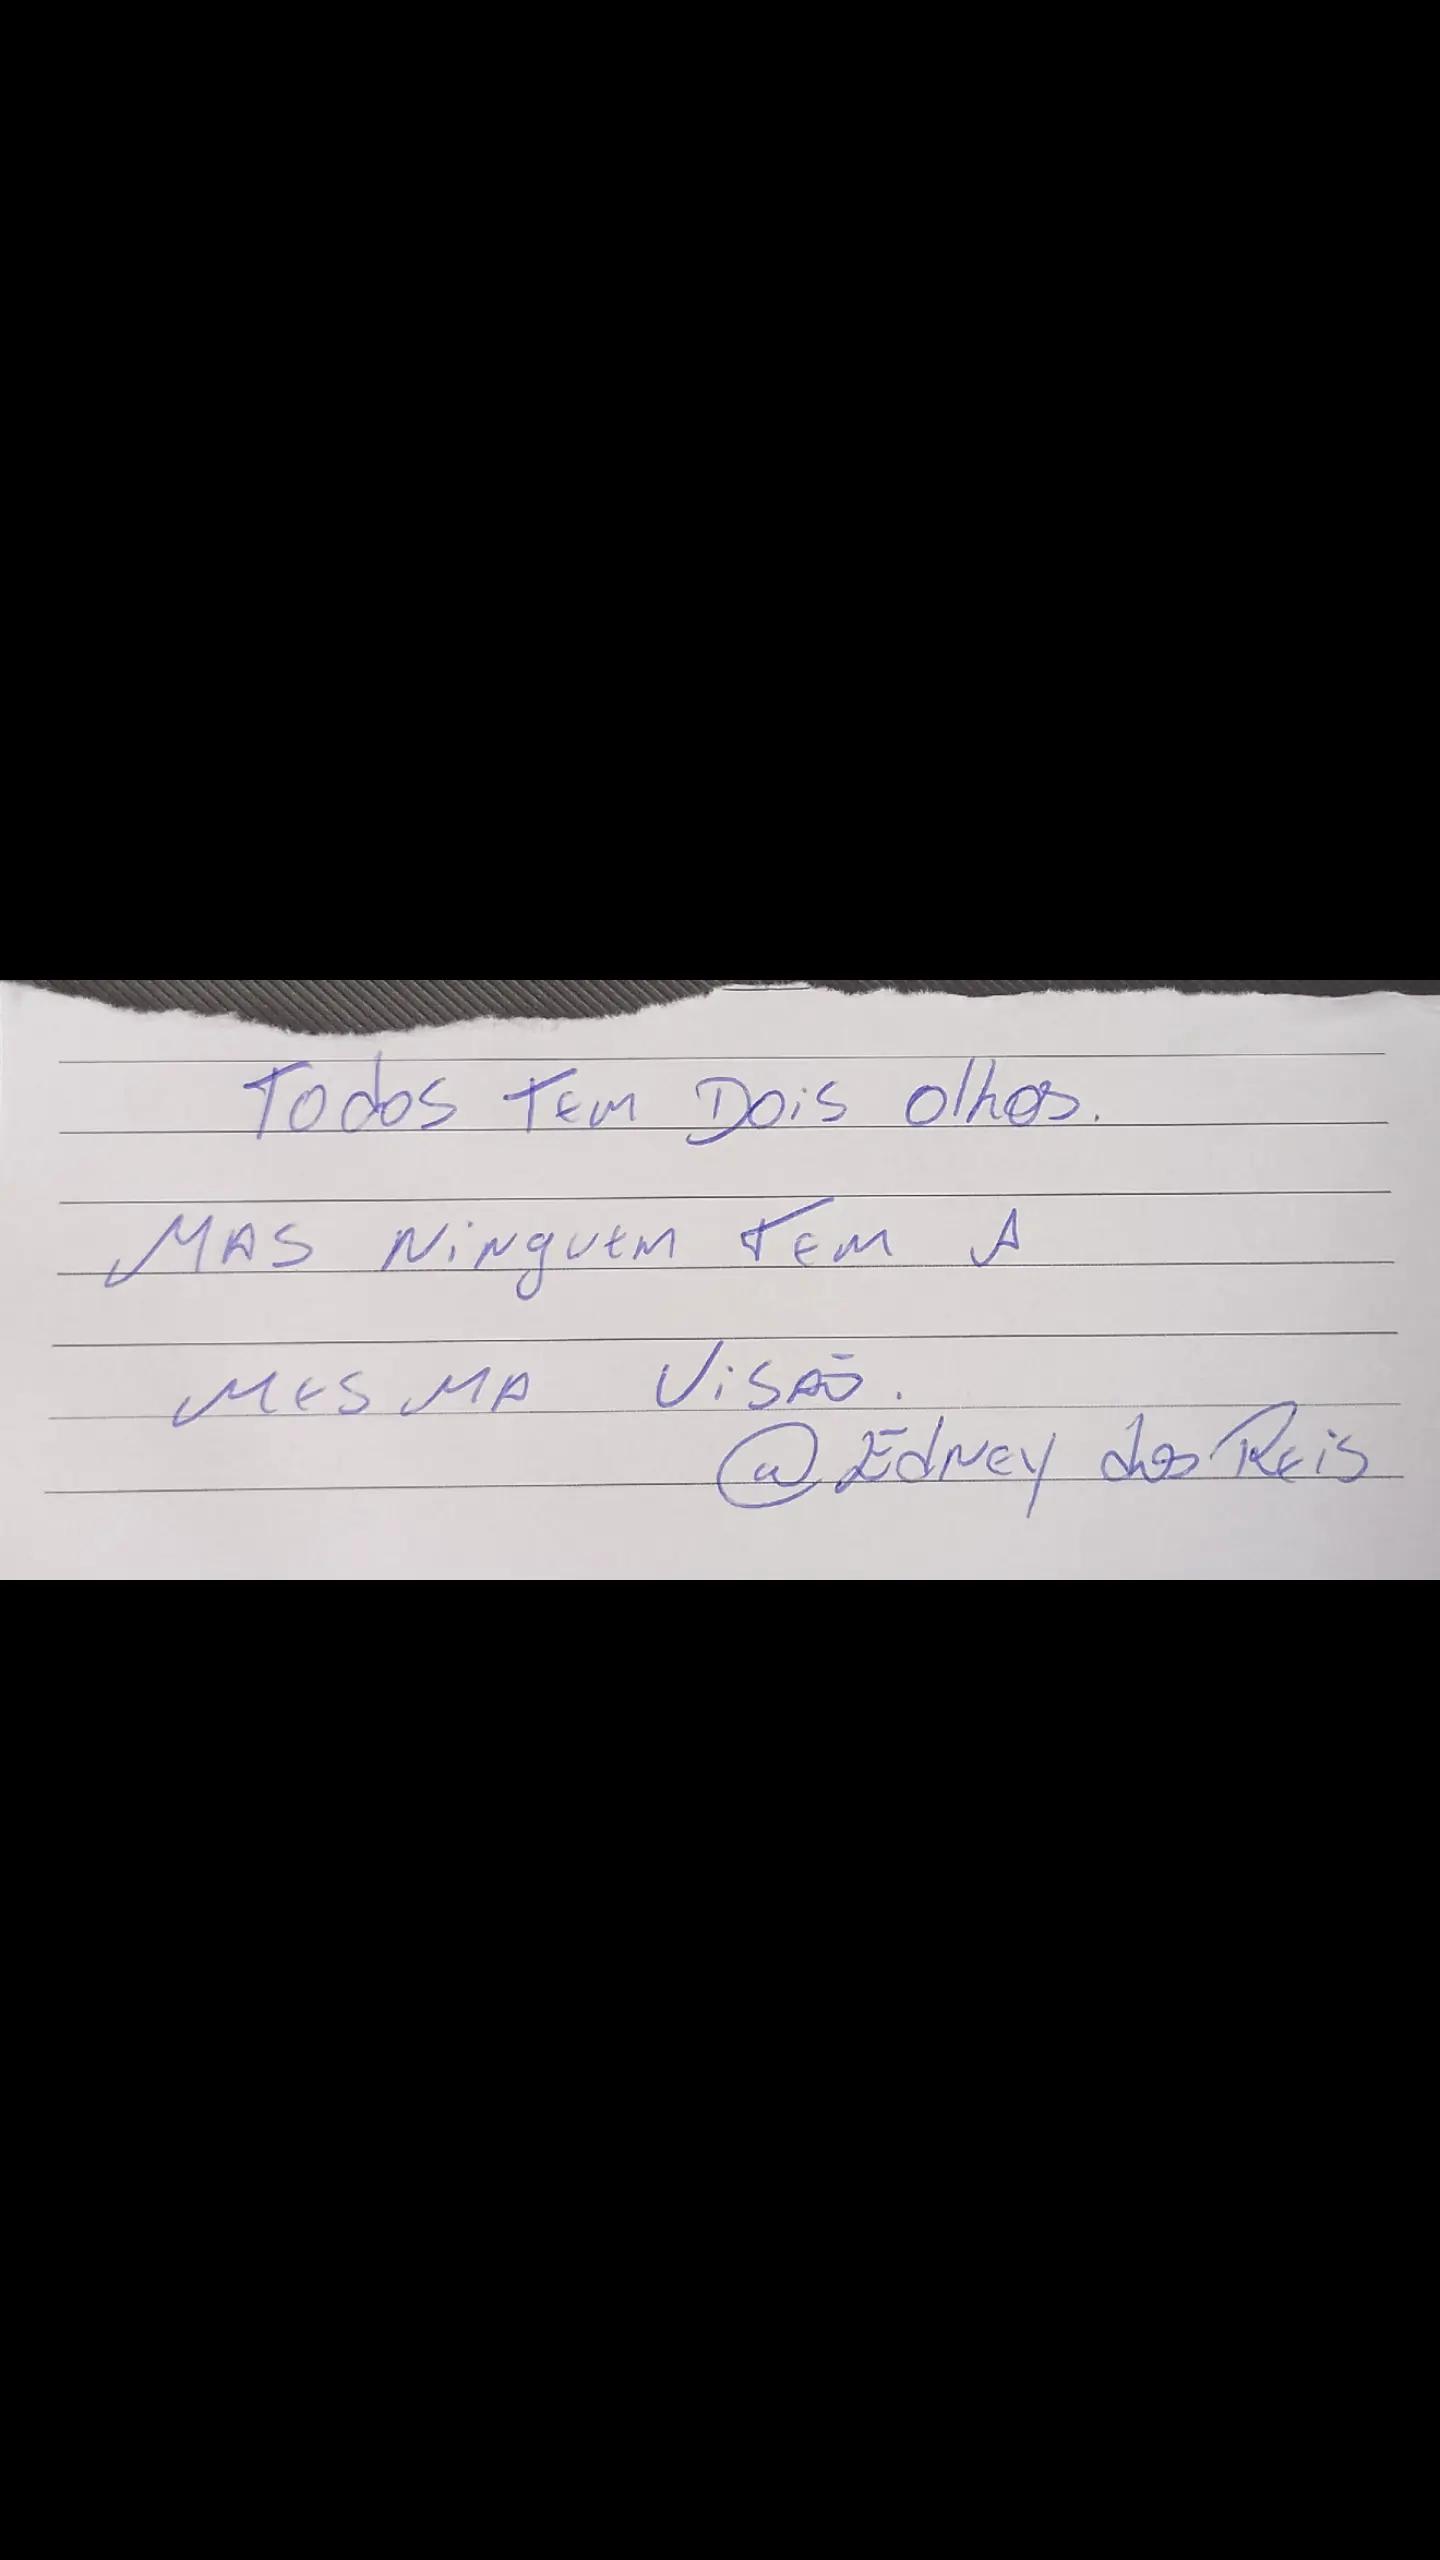 Todos Tem Dois olhos.
MAS NiNguem Tem A
MESMA ViSAO.
@Edney dos Reis